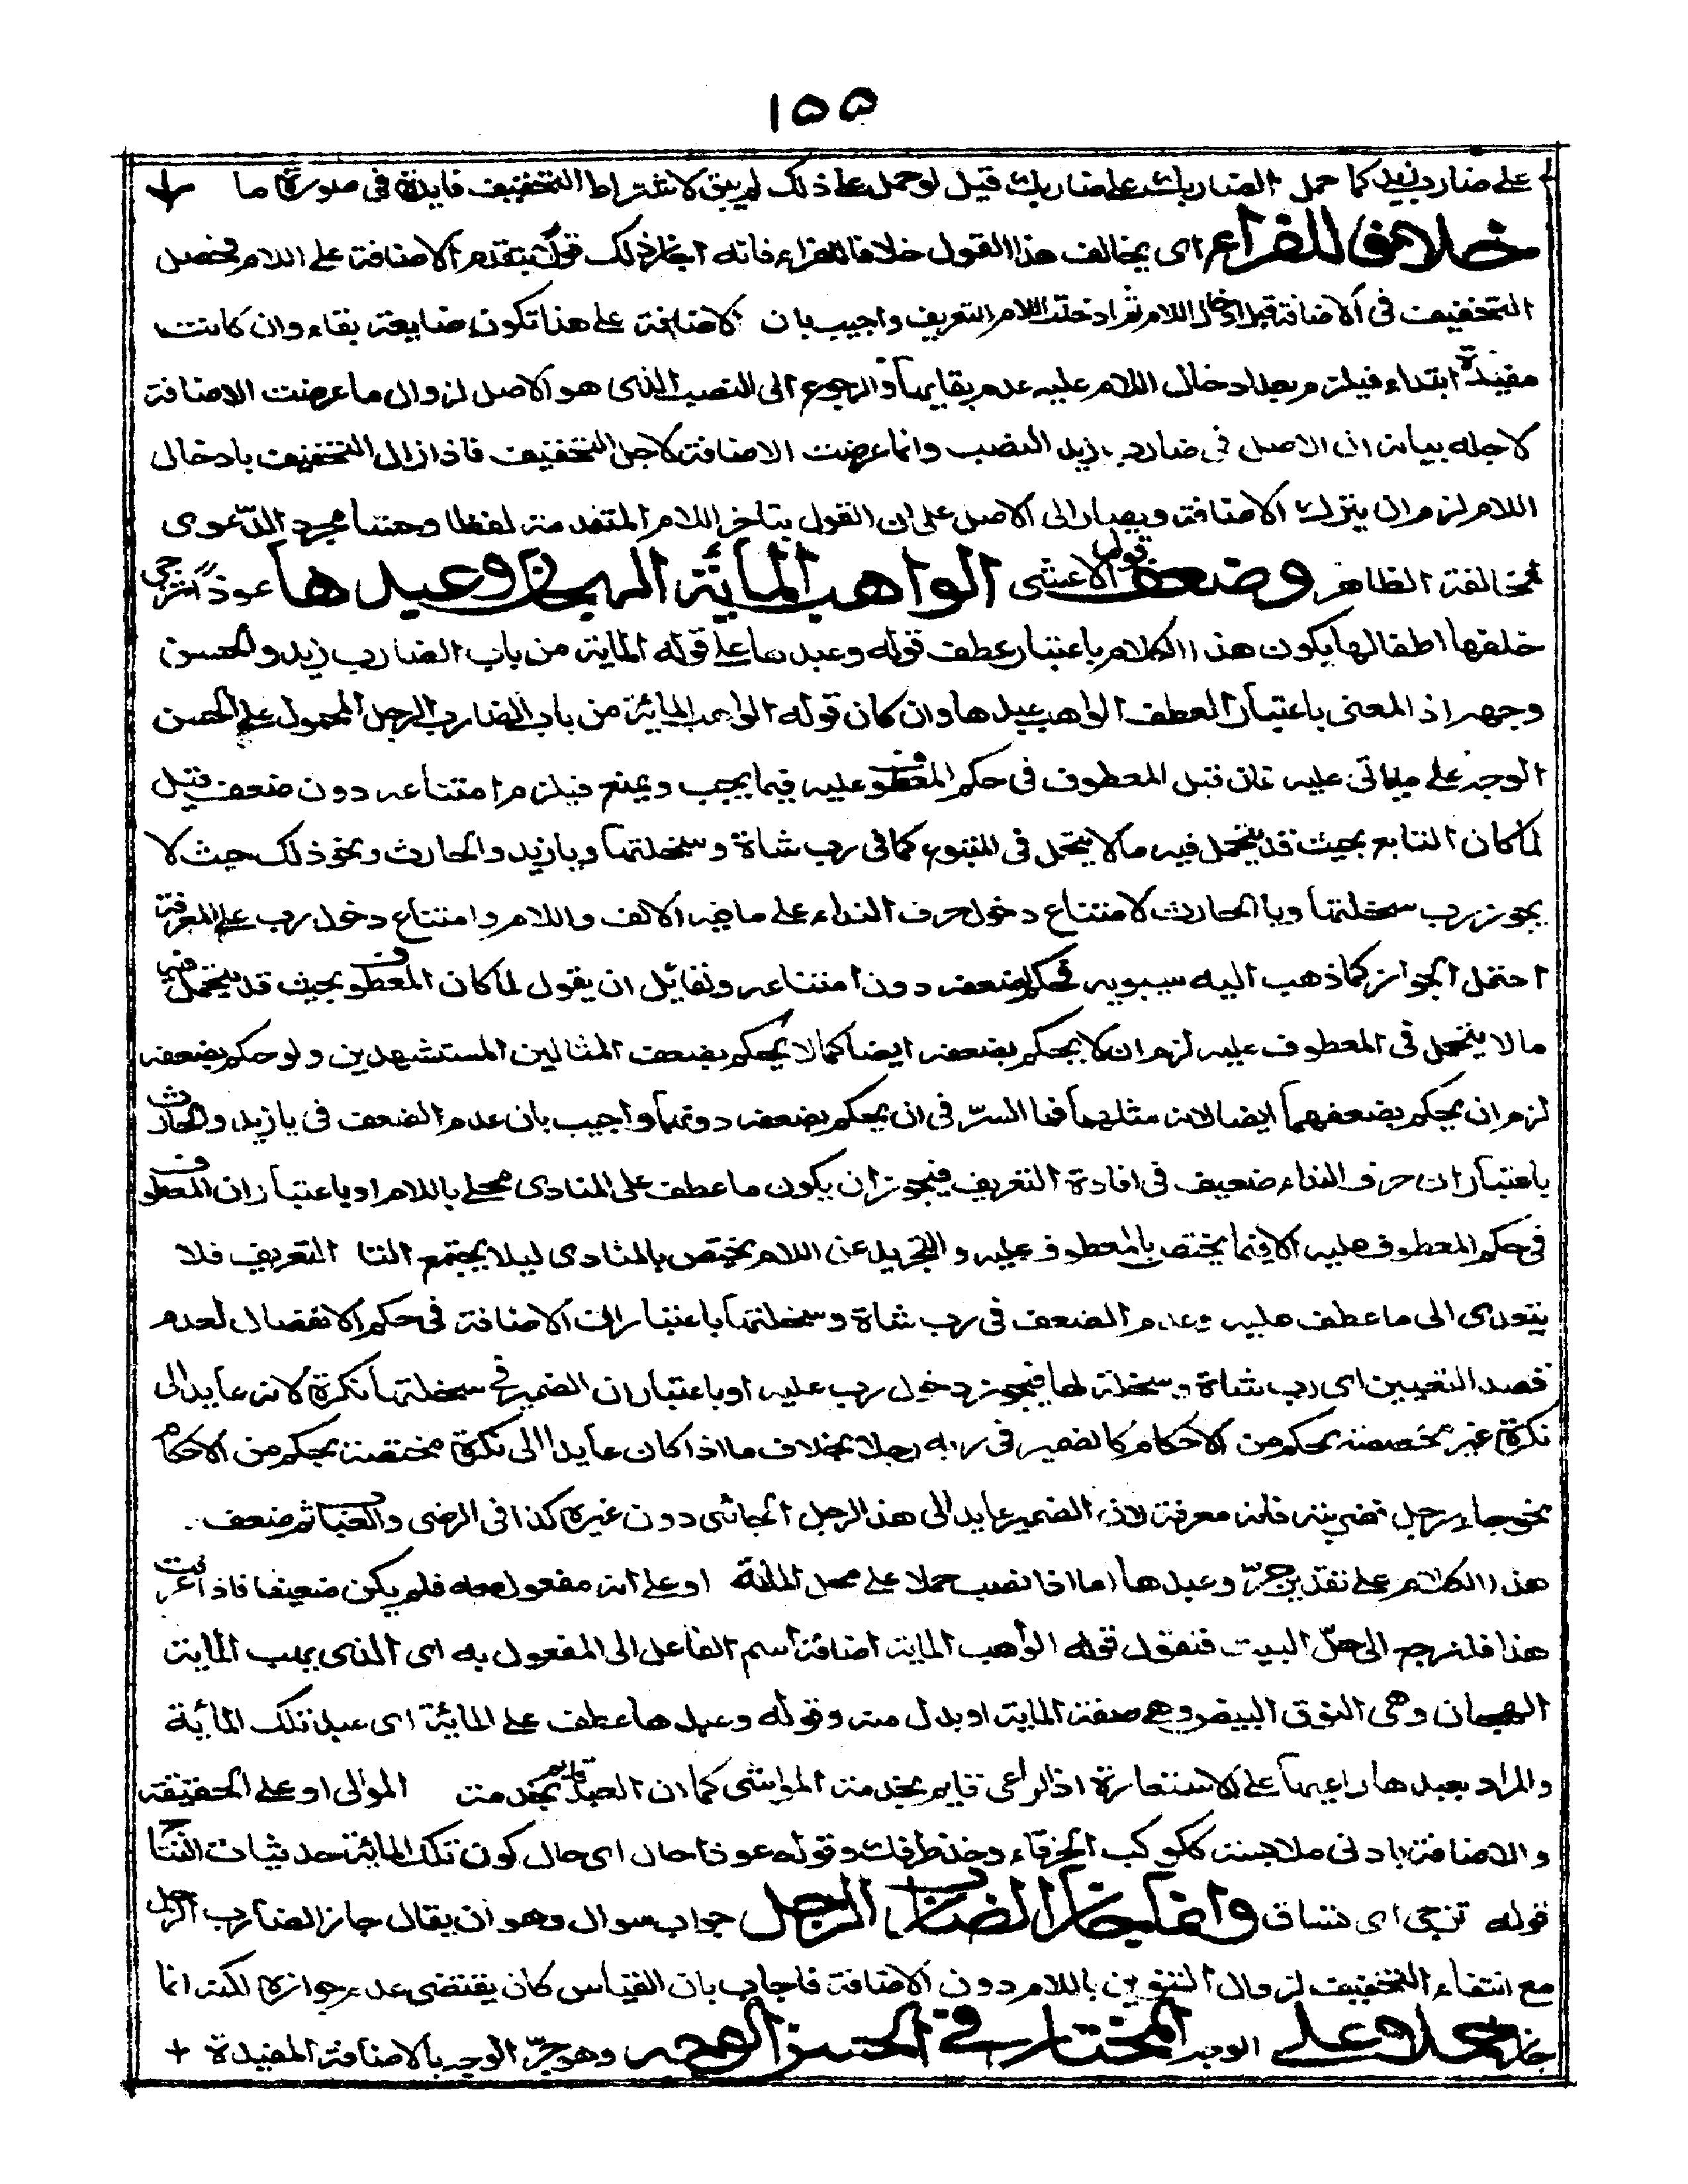 ١٥٥
على ضارب زيد كما حمل الضاربك على ضاربك قيل لو حمل على ذلك لم يبق لاشتراط التخفيف فايدة في صورة ما
خلافا للفراء اى يخالف هذا القول خلافا للفراء فانه اجاز ذلك بتقدم الاضافة على اللام فيحصل
التخفيف في الاضافة قبل ادخال اللام ثم ادخلت اللام للتعريف واجيب بان الاضافة على هذا تكون ضايعة بقاء وان كانت
مفيدة ابتداء فيلزم بعد ادخال اللام عليه عدم بقايها والرجوع الى النصب الذى هو الاصل لزوال ما عرضت الاضافة
لاجله بيانه ان الاصل في ضارب زيد النصب وانما عرضت الاضافة لاجل التخفيف فاذا زال التخفيف بادخال
اللام لزم ان يترك الاضافة ويصار الى الاصل على ان القول بتاخر اللام المتقدمة لفظا وحسا مجرد الدعوى
لمخالفة الظاهر وضعف قول الاعشى الواهب المائة الهجان وعبدها عوذا تزجى
خلفها اطفالها يكون هذا الكلام باعتبار عطف قوله وعبدها على قوله الماية من باب الضارب زيد والحسن
وجهه اذ المعنى باعتبار العطف الواهب عبدها وان كان قوله الواهب المائة من باب الضارب الرجل المحمول على الحسن
الوجه على ما ياتى عليه فان قيل المعطوف في حكم المعطوف عليه فيما يجب ويمنع فيلزم امتناعه دون ضعف قيل
لما كان التابع بحيث قد يتحمل فيه ما لا يتحمل في المتبوع كما في رب شاة وسخلتها ويا زيد والحارث ونحو ذلك حيث لا
يجوز رب سخلتها ويا الحارث لامتناع دخول حرف النداء على ما فيه الالف واللام وامتناع دخول رب على المعرفة
احتمل الجواز كما ذهب اليه سيبويه فحكم بضعفه دون امتناعه ولقائل ان يقول لما كان المعطوف بحيث قد يتحمل فيه
ما لا يتحمل في المعطوف عليه لزم ان لا يحكم بضعفه ايضا كما لا يحكم بضعف المثالين المستشهدين ولو حكم بضعفه
لزم ان يحكم بضعفهما ايضا لانه مثلهما فما السر في ان يحكم بضعفه دونهما واجيب بان عدم الضعف في يا زيد والحارث
باعتبار ان حرف النداء ضعيف في افادة التعريف فيجوز ان يكون ما عطف على المنادى محلى باللام او باعتبار ان المعطوف
في حكم المعطوف عليه الا فيما يختص بالمعطوف عليه والتجريد عن اللام يختص بالمنادى ليلا يجتمع التا التعريف فلا
يتعدى الى ما عطف عليه وعدم الضعف في رب شاة وسخلتها باعتبار ان الاضافة في حكم الانفصال لعدم
قصد التعيين اى رب شاة وسخلة لها فيجوز دخول رب عليه او باعتبار ان الضمير في سخلتها نكرة لانه عايد الى
نكرة غير مخصصة بحكم من الاحكام كالضمير في ربه رجلا بخلاف ما اذا كان عايدا الى نكرة مختصة بحكم من الاحكام
نحو جاءنى رجل فضربته فانه معرفة لان الضمير عايد الى هذا الرجل الجائى دون غيره كذا في الرضى والعباب ثم ضعف
هذا الكلام على تقدير جر وعبدها اما اذا نصب حملا على محل الماية او على انه مفعول معه فلم يكن ضعيفا فاذا عرفت
هذا فلنرجع الى حل البيت فنقول قوله الواهب الماية اضافة اسم الفاعل الى المفعول به اى الذى يهب الماية
الهجان وهى النوق البيض وهى صفة الماية او بدل منه وقوله وعبدها عطف على المائة اى عبد تلك المائة
والمراد بعبدها راعيها على الاستعارة اذ الراعى قايم بخدمة المواشى كما ان العبد قايم بخدمة الموالى او على الحقيقة
والاضافة بادنى ملابسة ككوكب الخرقاء وخذ طرفك وقوله عوذا حال اى حال كون تلك المائة حديثات النتاج
قوله تزجى اى تساق وانما جاز الضارب الرجل جواب سوال وهو ان يقال جاز الضارب الرجل
مع انتفاء التخفيف لزوال التنوين باللام دون الاضافة فاجاب بان القياس كان يقتضى عدم جوازه لكنه انما
جاز حملا على الوجه المختار في الحسن الوجه وهو جر الوجه بالاضافة المفيدة